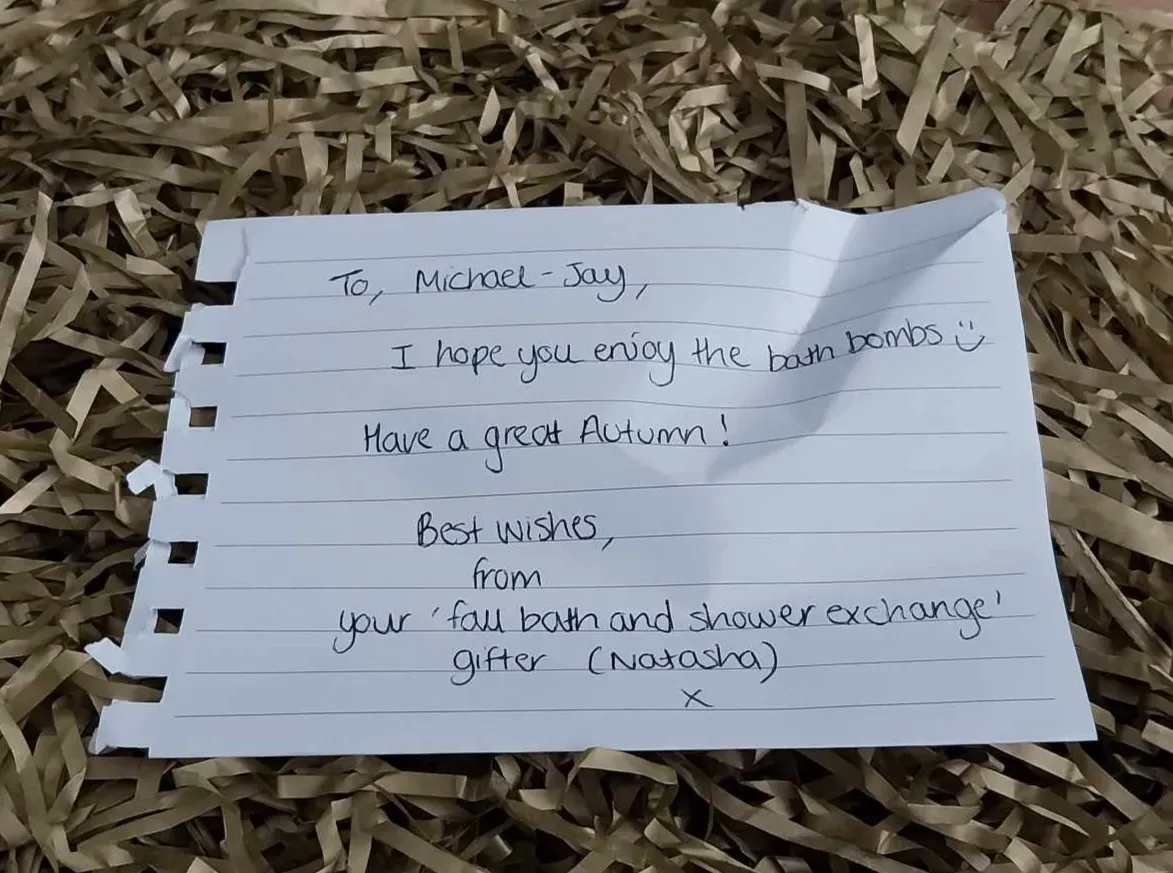 To, Michael-Jay,
I hope you enjoy the bath bombs :)
Have a great Autumn!
Best wishes,
from
your 'fall bath and shower exchange'
gifter (Natasha)
x